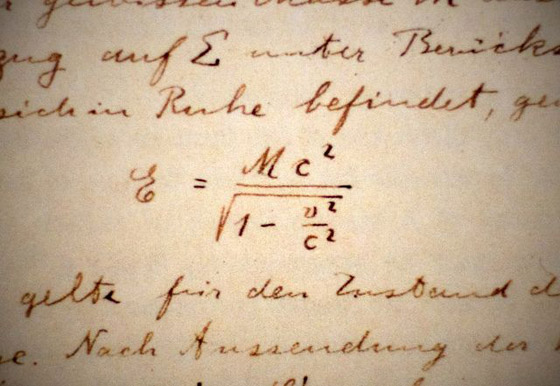 gewissen Masse M
zug auf Σ unter Berücks
sich in Ruhe befindet, ge
ℰ = M c² / √(1 - v²/c²)
gelte für den Zustand d
se. Nach Aussendung der